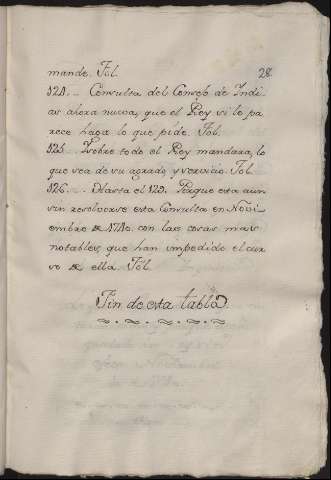 28.
mande. Fol.
524... Consulta del Consejo de Indi
as ahora nueva, que el Rey si le pa
rece haga lo que pide. Fol.
525. Sobre todo el Rey mandara, lo
que sea de su agrado, y servicio. Fol.
526... Hasta el 529. Porque esta aun
sin resolverse esta Consulta en Novi
embre de 1710. con las cosas mas
notables, que han impedido el cur
so de ella. Fol.
Fin de esta tabla.